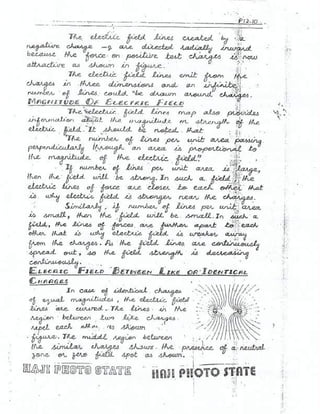 P12.10
The electric field lines created by a
negative charge -q are directed radially inward
because the force on positive test charges is now
attractive as shown in figure.
The electric field lines emit from the
charges in three dimensions and an infinite
number of lines could be drawn around charges.
MAGNITUDE OF ELECTRIC FIELD
The electric field lines map also provides
information about the magnitude or strength of the
electric field. It should be noted that
"The number of lines per unit area passing
perpendicularly through an area is proportional to
the magnitude of the electric field."
If number of lines per unit area is large,
then the field will be strong. In such a field, the
electric lines of force are closer to each other that
is why electric field is stronger near the charges.
Similarly, if number of lines per unit area
is small, then the field will be small. In such a
field, the lines of forces are further apart to each
other that is why electric field is weaker away
from the charges. As the field lines are continuously
spread out, so the field strength is decreasing
continuously.
ELECRIC FIELD BETWEEN LIKE OR IDENTICAL
CHARGES
In case of identical charges
of equal magnitudes, the electric field
lines are curved. The lines in the
region between two like charges
repel each other as shown
figure. The middle region between
the similar charges shows the presence of a neutral
zone or zero field spot as shown.
HAJI PHOTO STATE HAJI PHOTO STATE